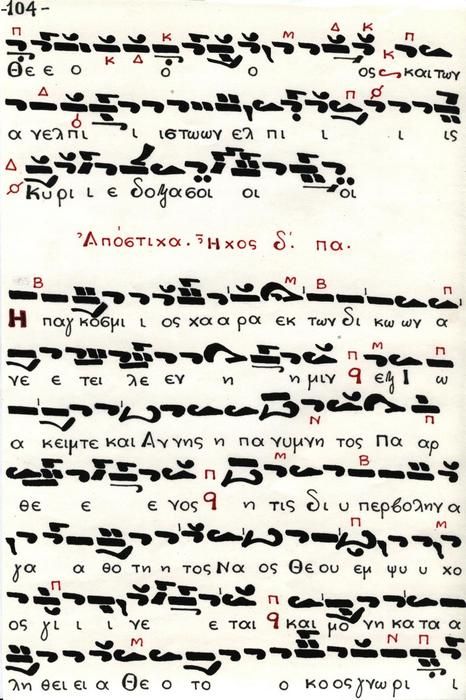 -104-
Θε ε ο ο ο ος και των
α γελ πι ι ιστωων ελ πι ι ι ις
Κυ ρι ι ε δοξασοι οι οι
Ἀπόστιχα. Ἦχος δ'. πα.
Η παγ κοσμι ι ος χα α ρα εκ των δι κω ων α
γε ε τει λε εν η η μιν q εξ Ι ω
α κειμ τε και Αν νης η πα γυμνη τος Πα αρ
θε ε ε ε νος q η τις δι υ περβολην α
γα α θο τη η τος Να ος Θε ου εμ ψυ υ χο
ος γι ι ι νε ε ται q και μο νη κα τα α
λη θει ει α Θε ο το ο κο ος γνω ρι ι